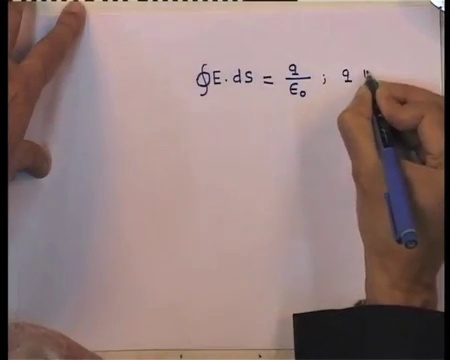 ∮E.dS = q/ϵ₀ ; q